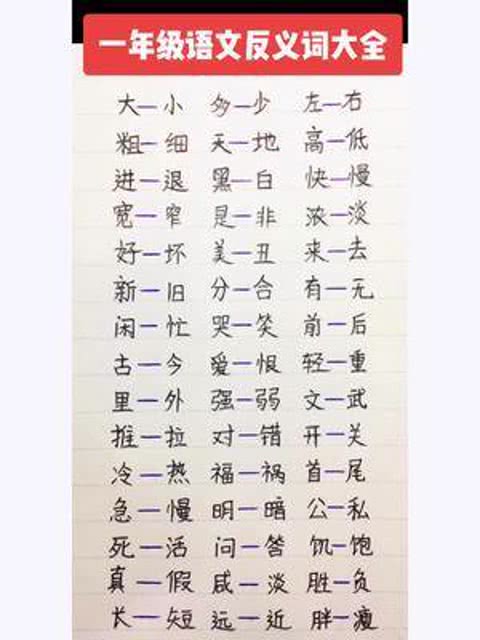 一年级语文反义词大全
大—小 多—少 左—右
粗—细 天—地 高—低
进—退 黑—白 快—慢
宽—窄 是—非 浓—淡
好—坏 美—丑 来—去
新—旧 分—合 有—无
闲—忙 哭—笑 前—后
古—今 爱—恨 轻—重
里—外 强—弱 文—武
推—拉 对—错 开—关
冷—热 福—祸 首—尾
急—慢 明—暗 公—私
死—活 问—答 饥—饱
真—假 咸—淡 胜—负
长—短 远—近 胖—瘦